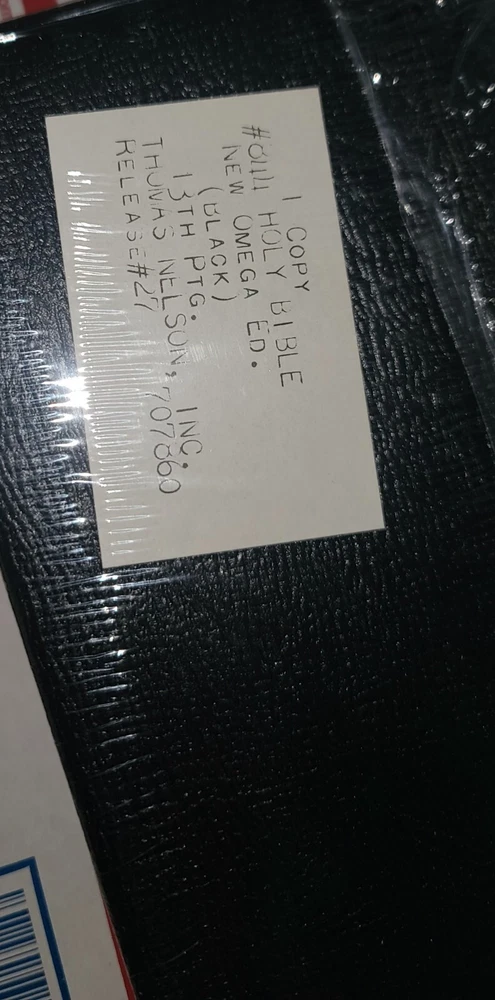 1 COPY
#844 HOLY BIBLE
NEW OMEGA ED.
(BLACK)
13TH PTG.
THOMAS NELSON, INC.
RELEASE#27 707860